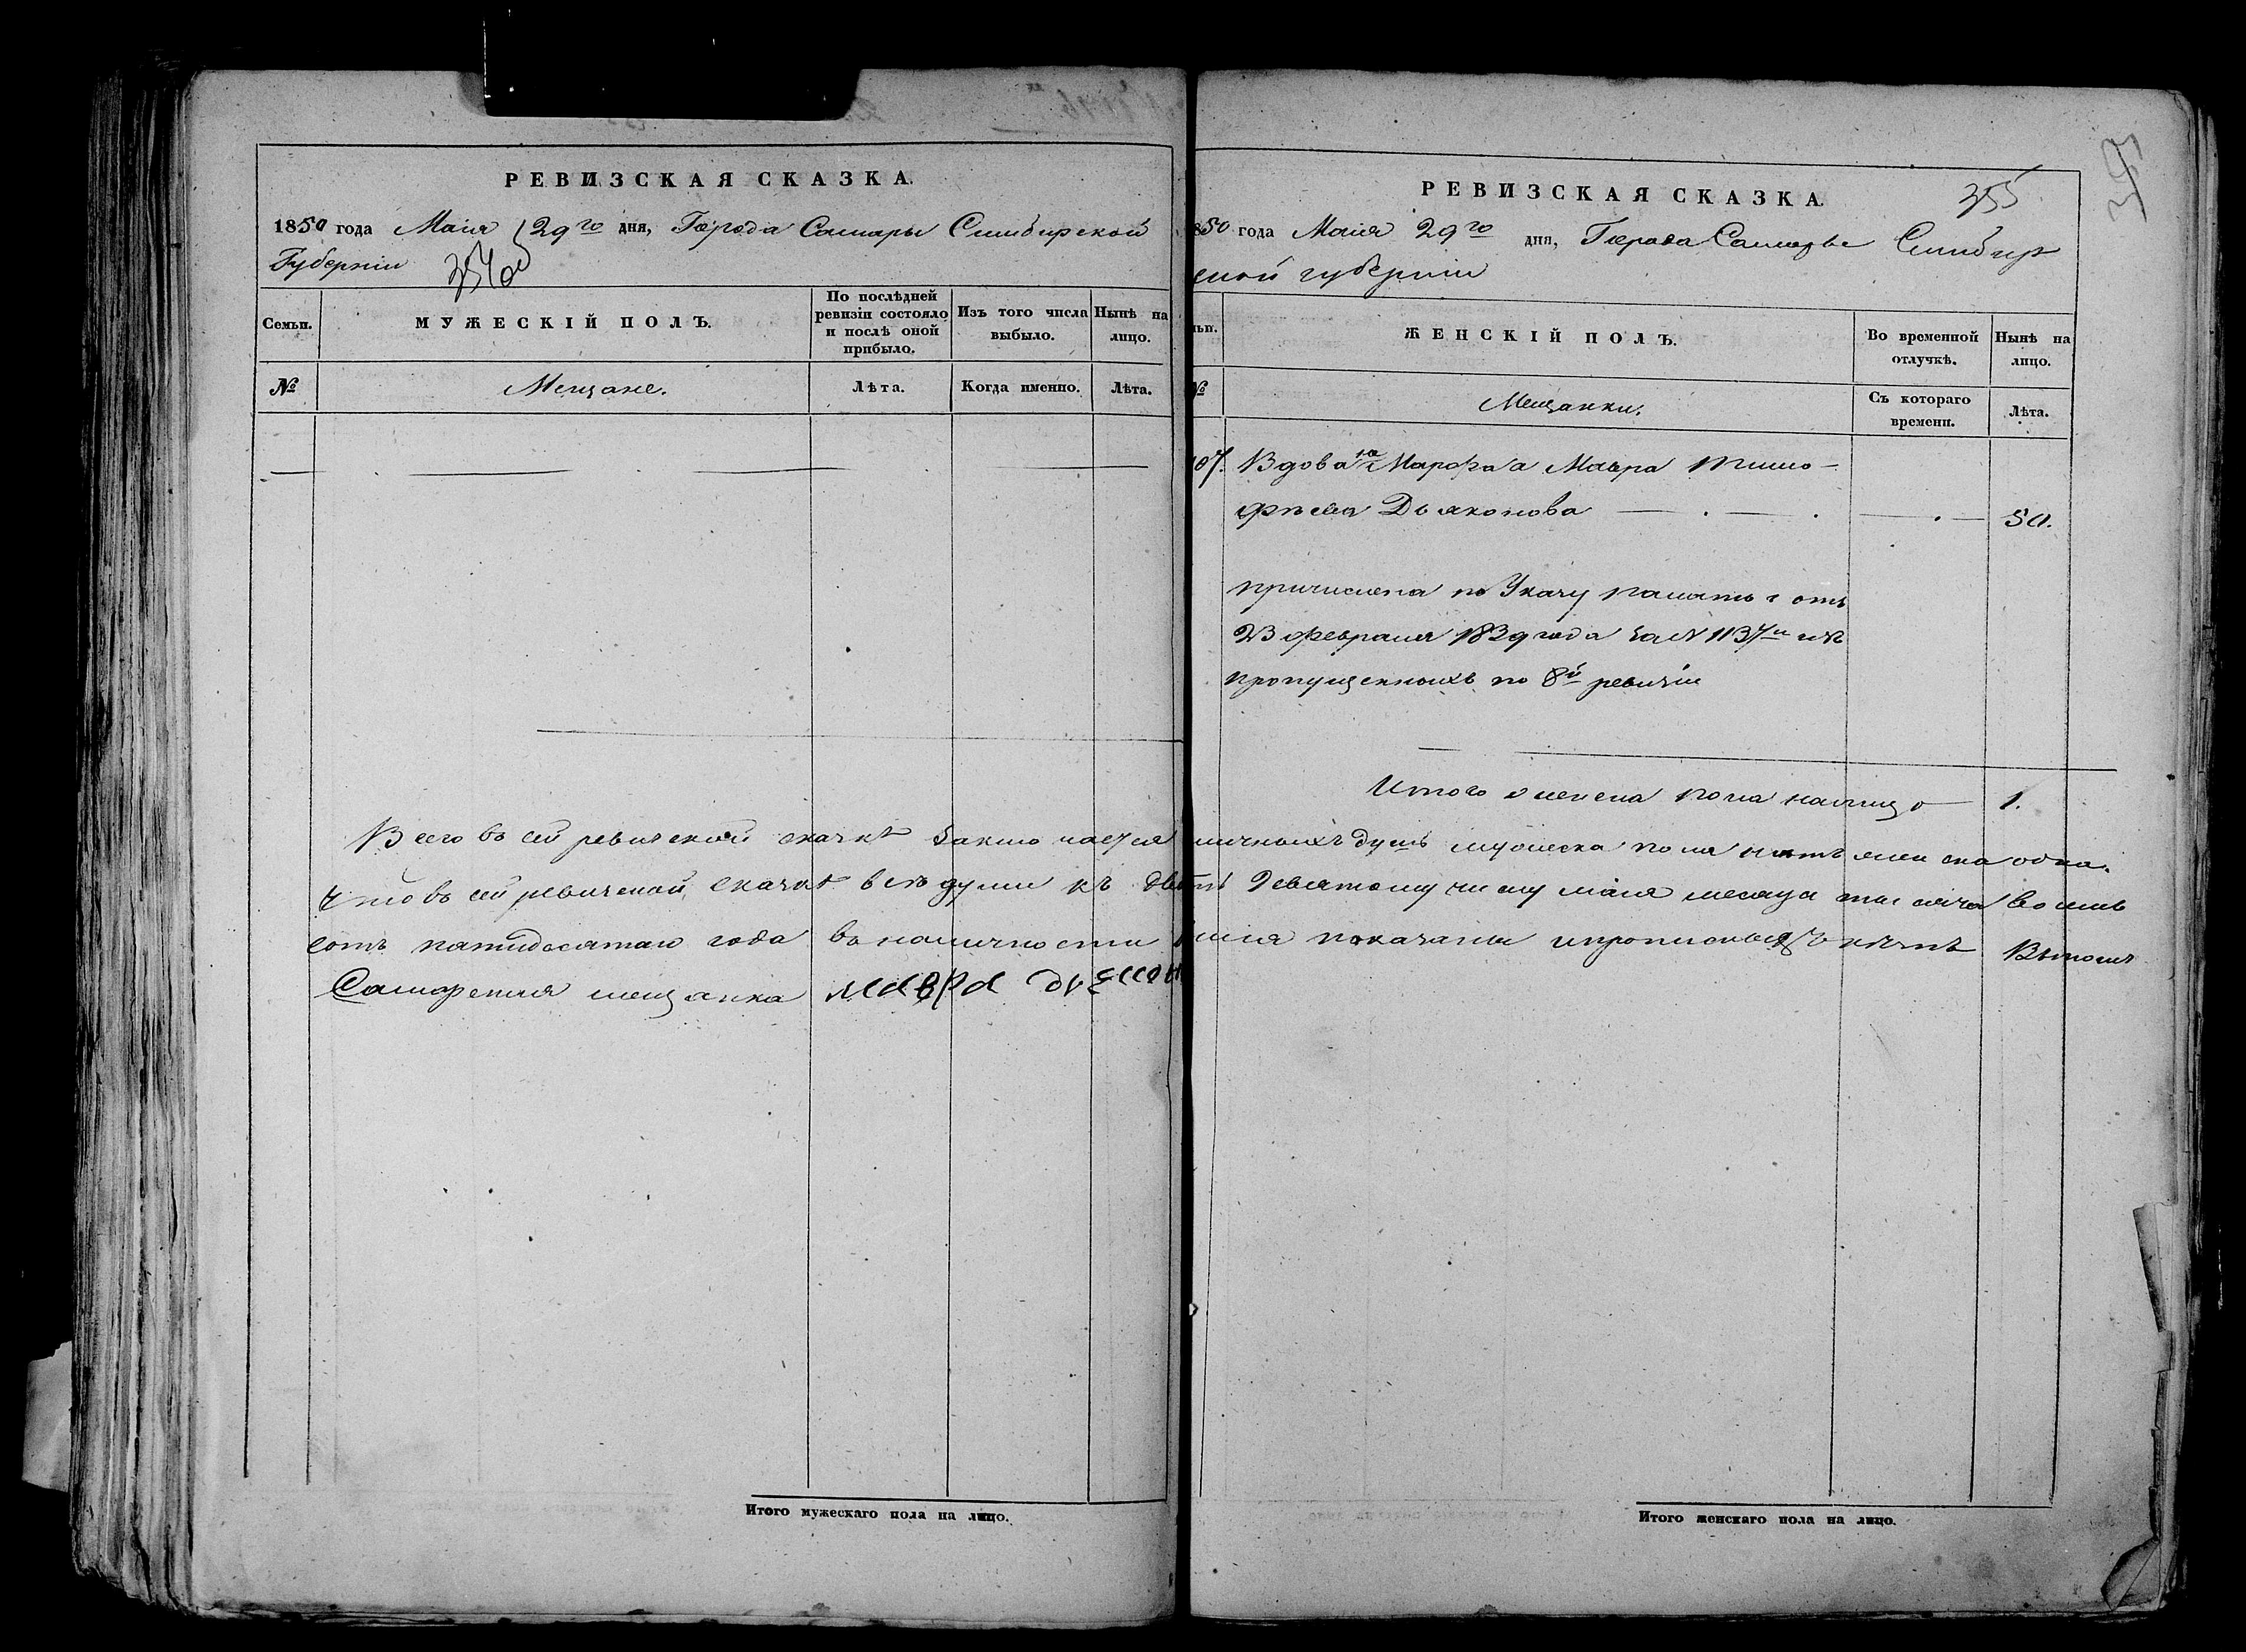 РЕВИЗСКАЯ СКАЗКА.
1850 года Маія 29го дня, Города Самары Симбирской
Губерніи
Семьи.
МУЖЕСКІЙ ПОЛЪ.
По послѣдней
ревизіи состояло
и послѣ оной
прибыло.
Изъ того числа
выбыло.
Нынѣ на
лицо.
№
Мещане.
Лѣта.
Когда именно.
Лѣта.
РЕВИЗСКАЯ СКАЗКА.
355
850 года Маія 29го дня, Города Самары Симбир
ской губерніи
ьи.
ЖЕНСКІЙ ПОЛЪ.
Во временной
отлучкѣ.
Нынѣ на
лицо.
№
Мещанки.
Съ котораго
времени.
Лѣта.
107. Вдова Мавра Тимо-
фѣева Дьяконова 50.
причислена по Указу палаты отъ
23 февраля 1839 года за N 1137м изъ
пропущенныхъ по 8й ревизіи
Итого женска пола налицо 1.
Всего въ сей ревизской сказкѣ заключается личныхъ душъ мужеска пола нѣтъ женска одна.
Что въ сей ревизской сказкѣ всѣ души къ двадцать девятому числу маія месяца тысяча восемь
сотъ пятидесятаго года въ наличности показаны и прописныхъ нѣтъ Въ томъ
Самарская мещанка мавра
Итого мужескаго пола на лицо.
Итого женскаго пола на лицо.